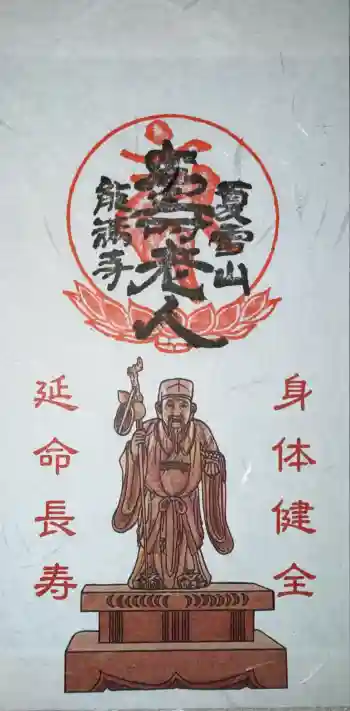 夏雪山
壽老人
能満寺
身体健全
延命長寿